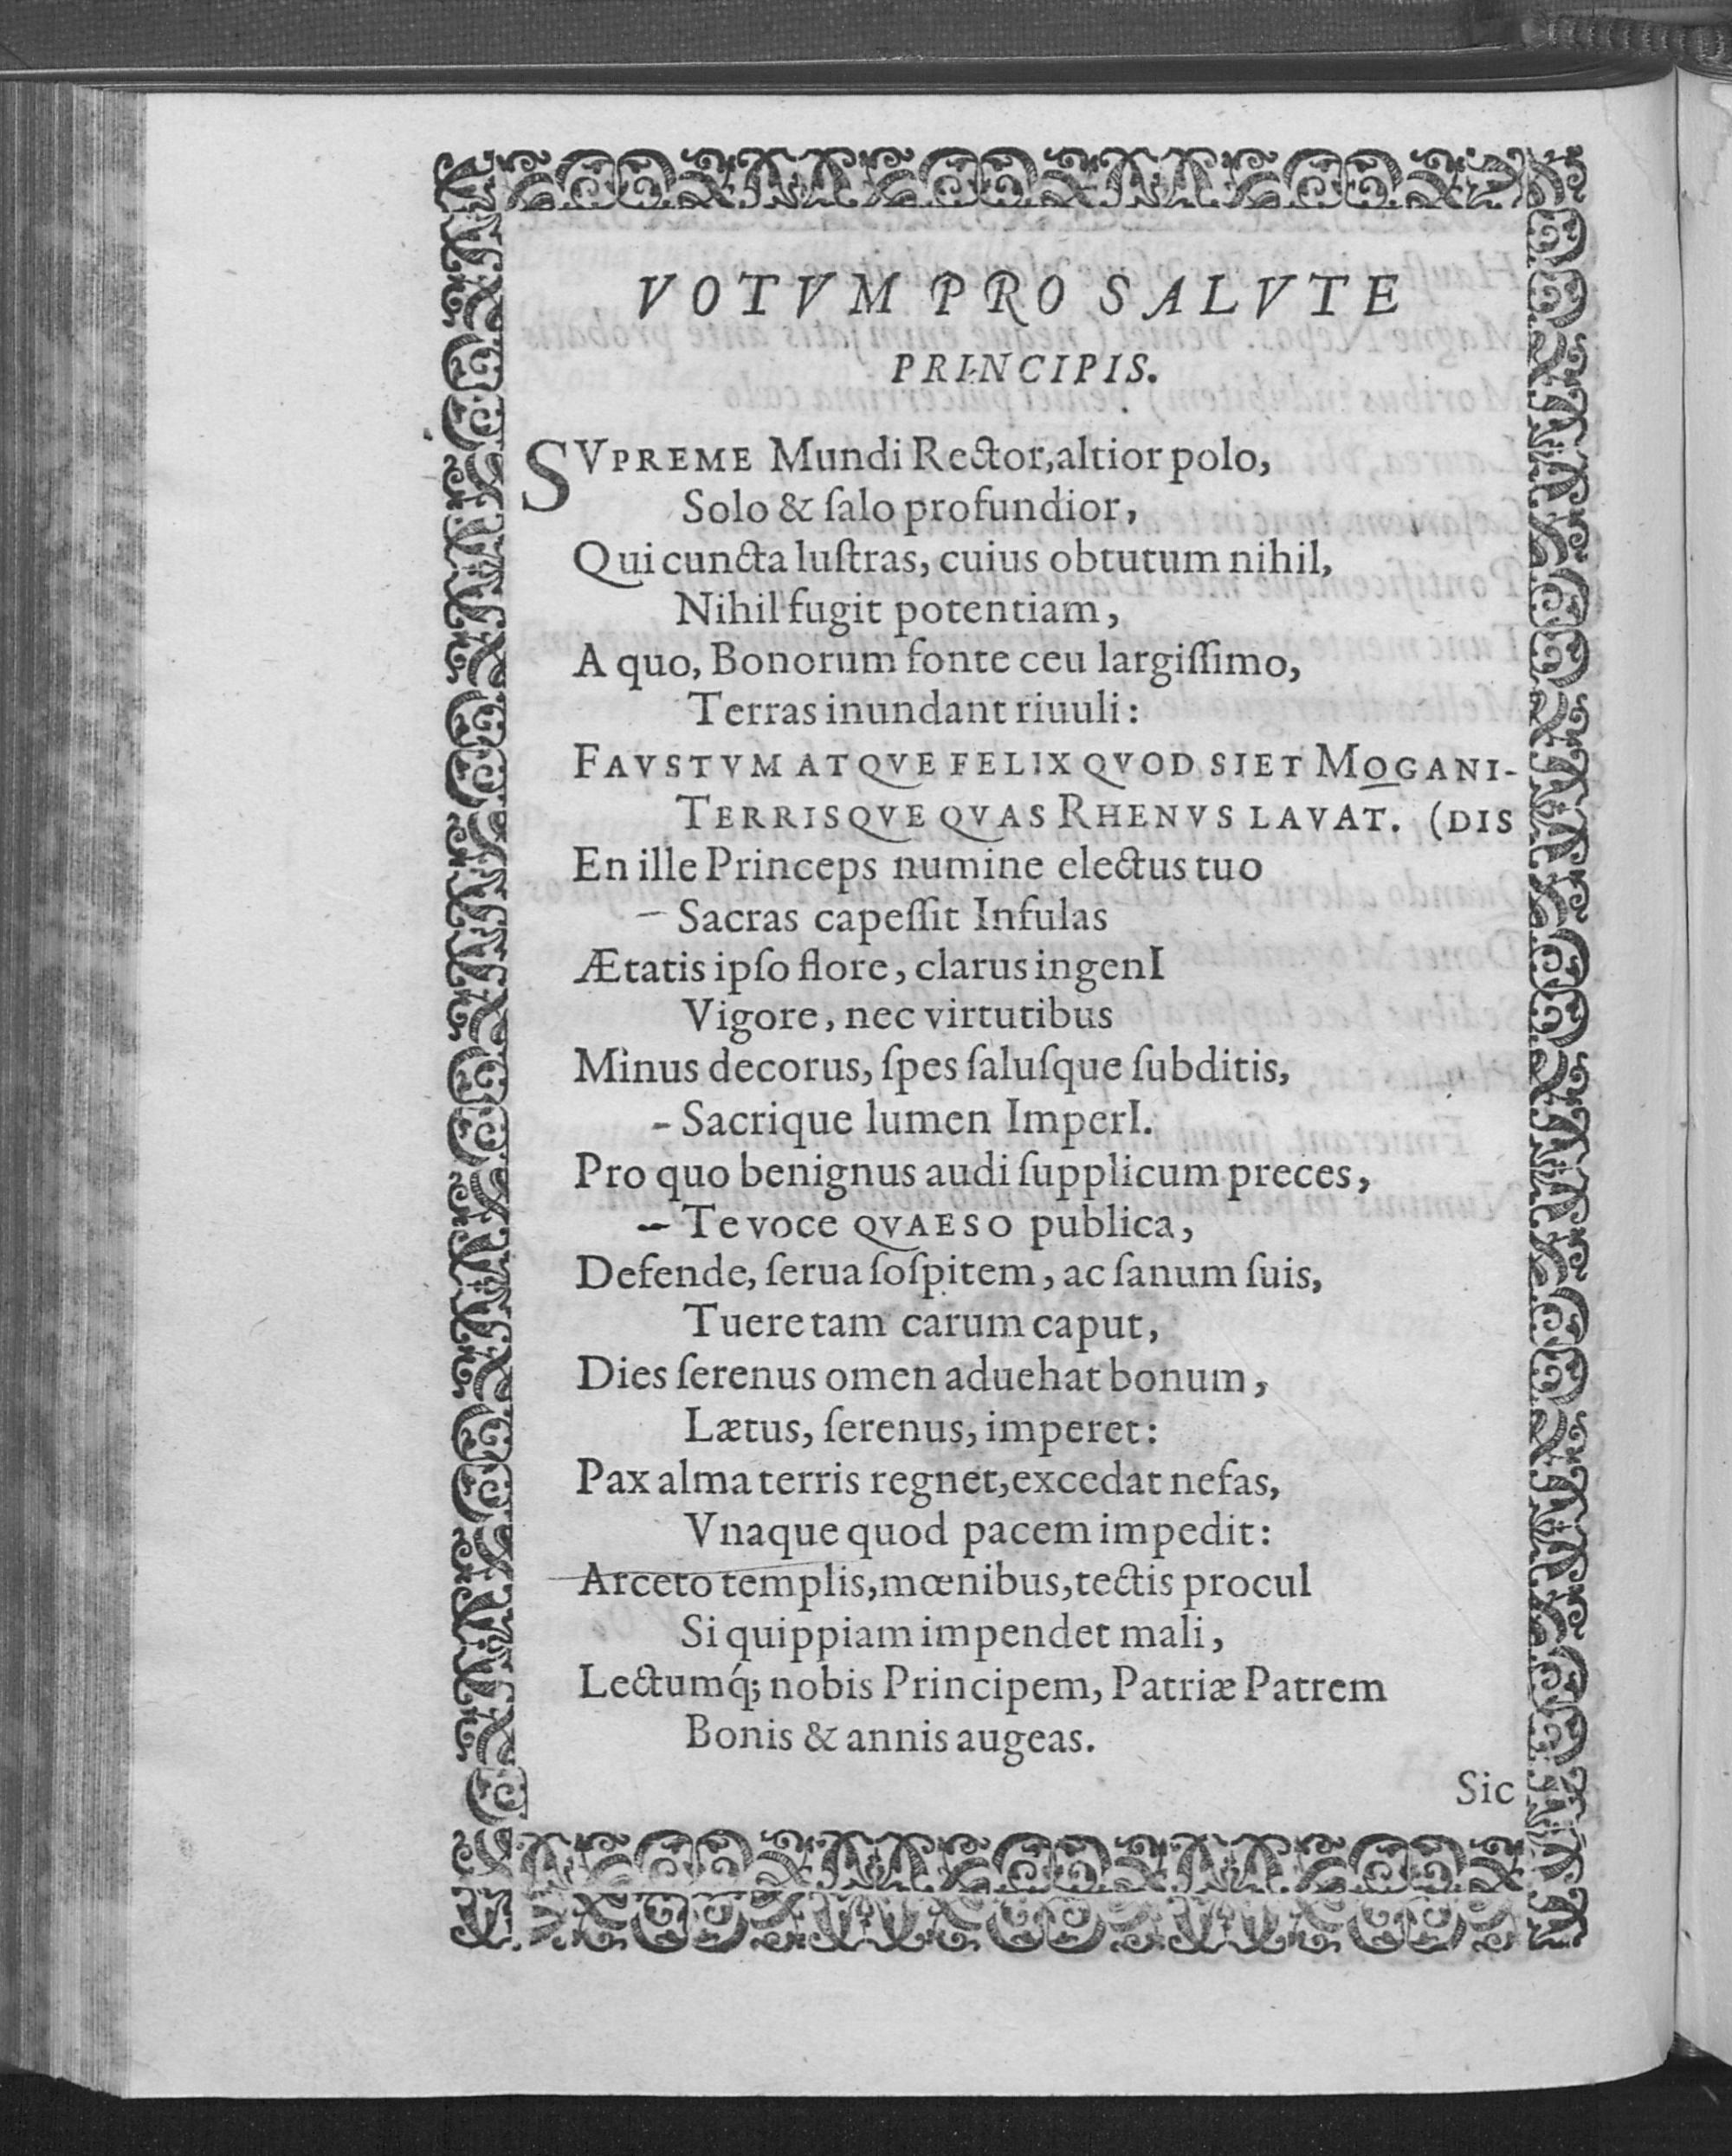 VOTVM PRO SALVTE
PRINCIPIS.
SVPREME Mundi Rector, altior polo,
Solo & ſalo profundior,
Qui cuncta luſtras, cuius obtutum nihil,
Nihil fugit potentiam,
A quo, Bonorum fonte ceu largiſſimo,
Terras inundant riuuli:
FAVSTVM ATQVE FELIX QVOD SIET MOGANI-
TERRISQVE QVAS RHENVS LAVAT. (DIS
En ille Princeps numine electus tuo
– Sacras capeſſit Infulas
Ætatis ipſo flore, clarus ingenI
Vigore, nec virtutibus
Minus decorus, ſpes ſaluſque ſubditis,
- Sacrique lumen ImperI.
Pro quo benignus audi ſupplicum preces,
– Te voce QVAESO publica,
Defende, ſerua ſoſpitem, ac ſanum ſuis,
Tuere tam carum caput,
Dies ſerenus omen aduehat bonum,
Lætus, ſerenus, imperet:
Pax alma terris regnet, excedat nefas,
Vnaque quod pacem impedit:
Arceto templis, mœnibus, tectis procul
Si quippiam impendet mali,
Lectumq́; nobis Principem, Patriæ Patrem
Bonis & annis augeas.
Sic